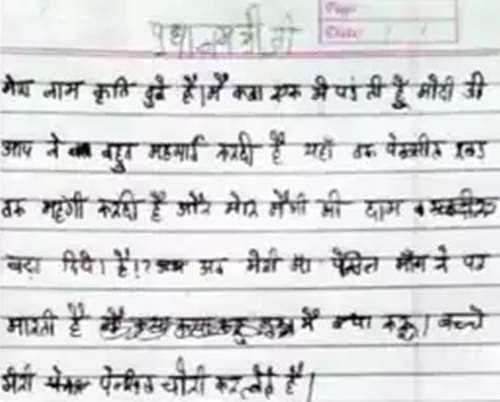 प्रधानमंत्री जी
Date:
मेरा नाम कृति दुबे है। मैं कक्षा एक में पढ़ती हूँ मोदी जी
आप ने बहुत महगाई करदी है यहाँ तक पेन्सील रबड़
तक महंगी करदी है और मेरि मैगी की दाम
बढ़ा दिये। है।? अब मेरी माँ पेंसिल माँग ने पर
मारती है मैं क्या करू। बच्चे
मेरी पेन्सिल चोरी कर लेते है।